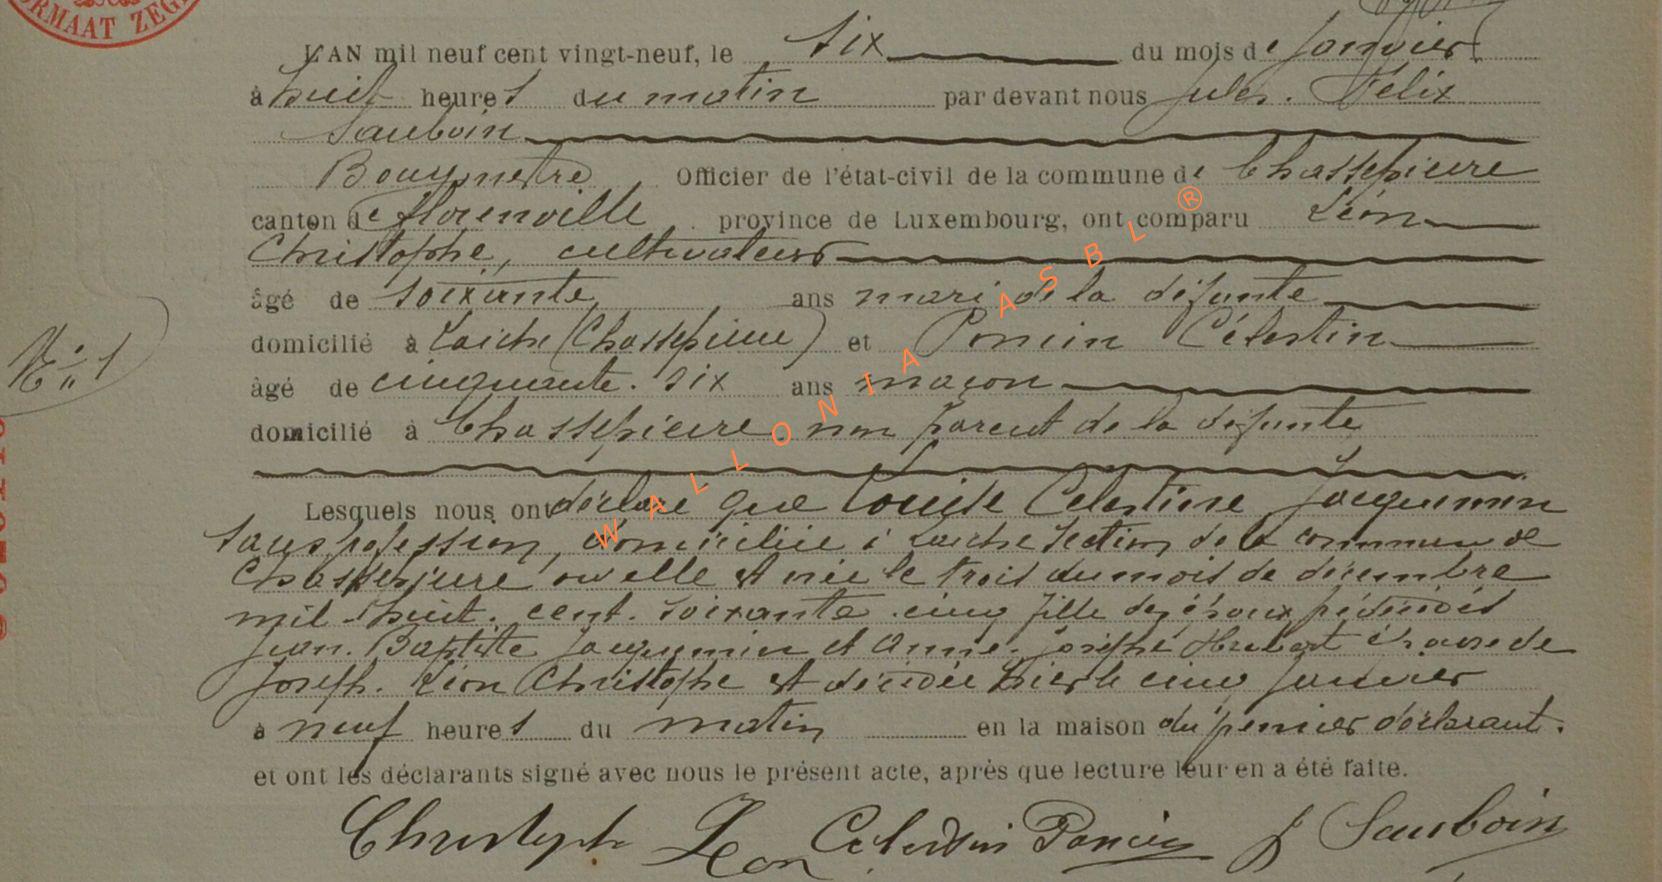 ORMAAT ZEG
L'AN mil neuf cent vingt-neuf, le six du mois de janvier
à huit heures du matin par devant nous Jules. Félix
Sauboin
Bourgmestre Officier de l'état-civil de la commune de Chassepierre
canton de Florenville province de Luxembourg, ont comparu Léon
Christophe, cultivateur
âgé de soixante ans mari de la défunte
domicilié à Laiche (Chassepierre) et Poncin Célestin
âgé de cinquante. six ans maçon
domicilié à Chassepierre non parent de la défunte
N° 1
Lesquels nous ont déclaré que Louise Célestine Jacquemin
sans profession, domiciliée à Laiche section de la commune de
Chassepierre où elle est née le trois du mois de décembre
mil huit. cent. soixante. cinq fille des époux prédécédés
Jean. Baptiste Jacquemin et Anne. Josephe Hubert épouse de
Joseph. Léon Christophe est décédée hier le cinq janvier
à neuf heures du matin en la maison du premier déclarant.
et ont les déclarants signé avec nous le présent acte, après que lecture leur en a été faite.
Christophe Léon Celestin Poncin J Sauboin
WALLONIA ASBL ®